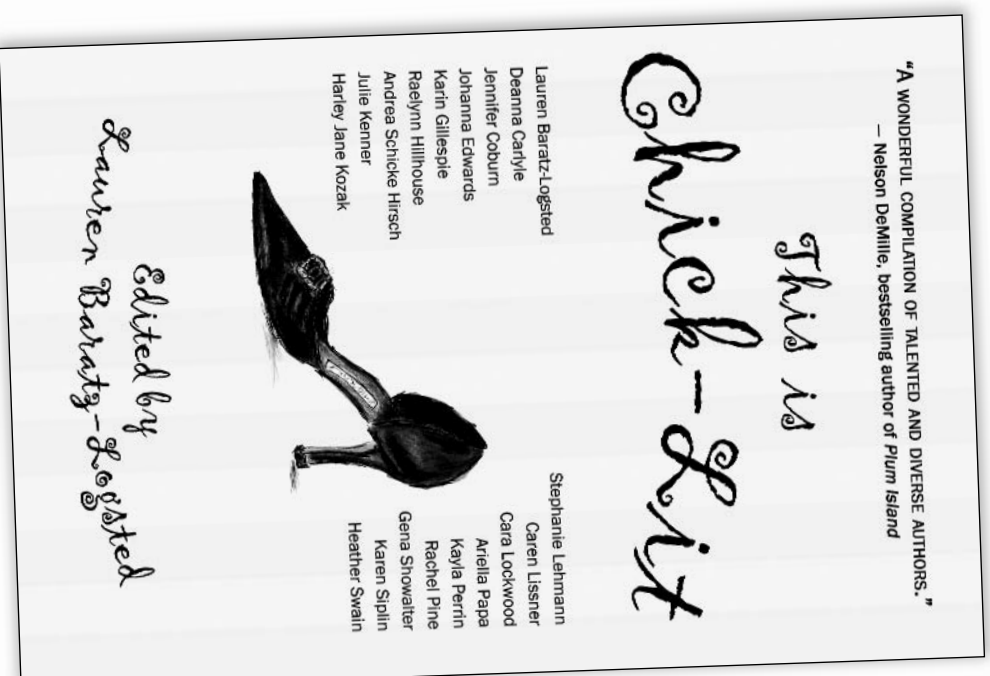 “A WONDERFUL COMPILATION OF TALENTED AND DIVERSE AUTHORS.”
— Nelson DeMille, bestselling author of Plum Island
This is
Chick-Lit
Lauren Baratz-Logsted
Deanna Carlyle
Jennifer Coburn
Johanna Edwards
Karin Gillespie
Raelynn Hillhouse
Andrea Schicke Hirsch
Julie Kenner
Harley Jane Kozak
Stephanie Lehmann
Caren Lissner
Cara Lockwood
Ariella Papa
Kayla Perrin
Rachel Pine
Gena Showalter
Karen Siplin
Heather Swain
Edited by
Lauren Baratz-Logsted